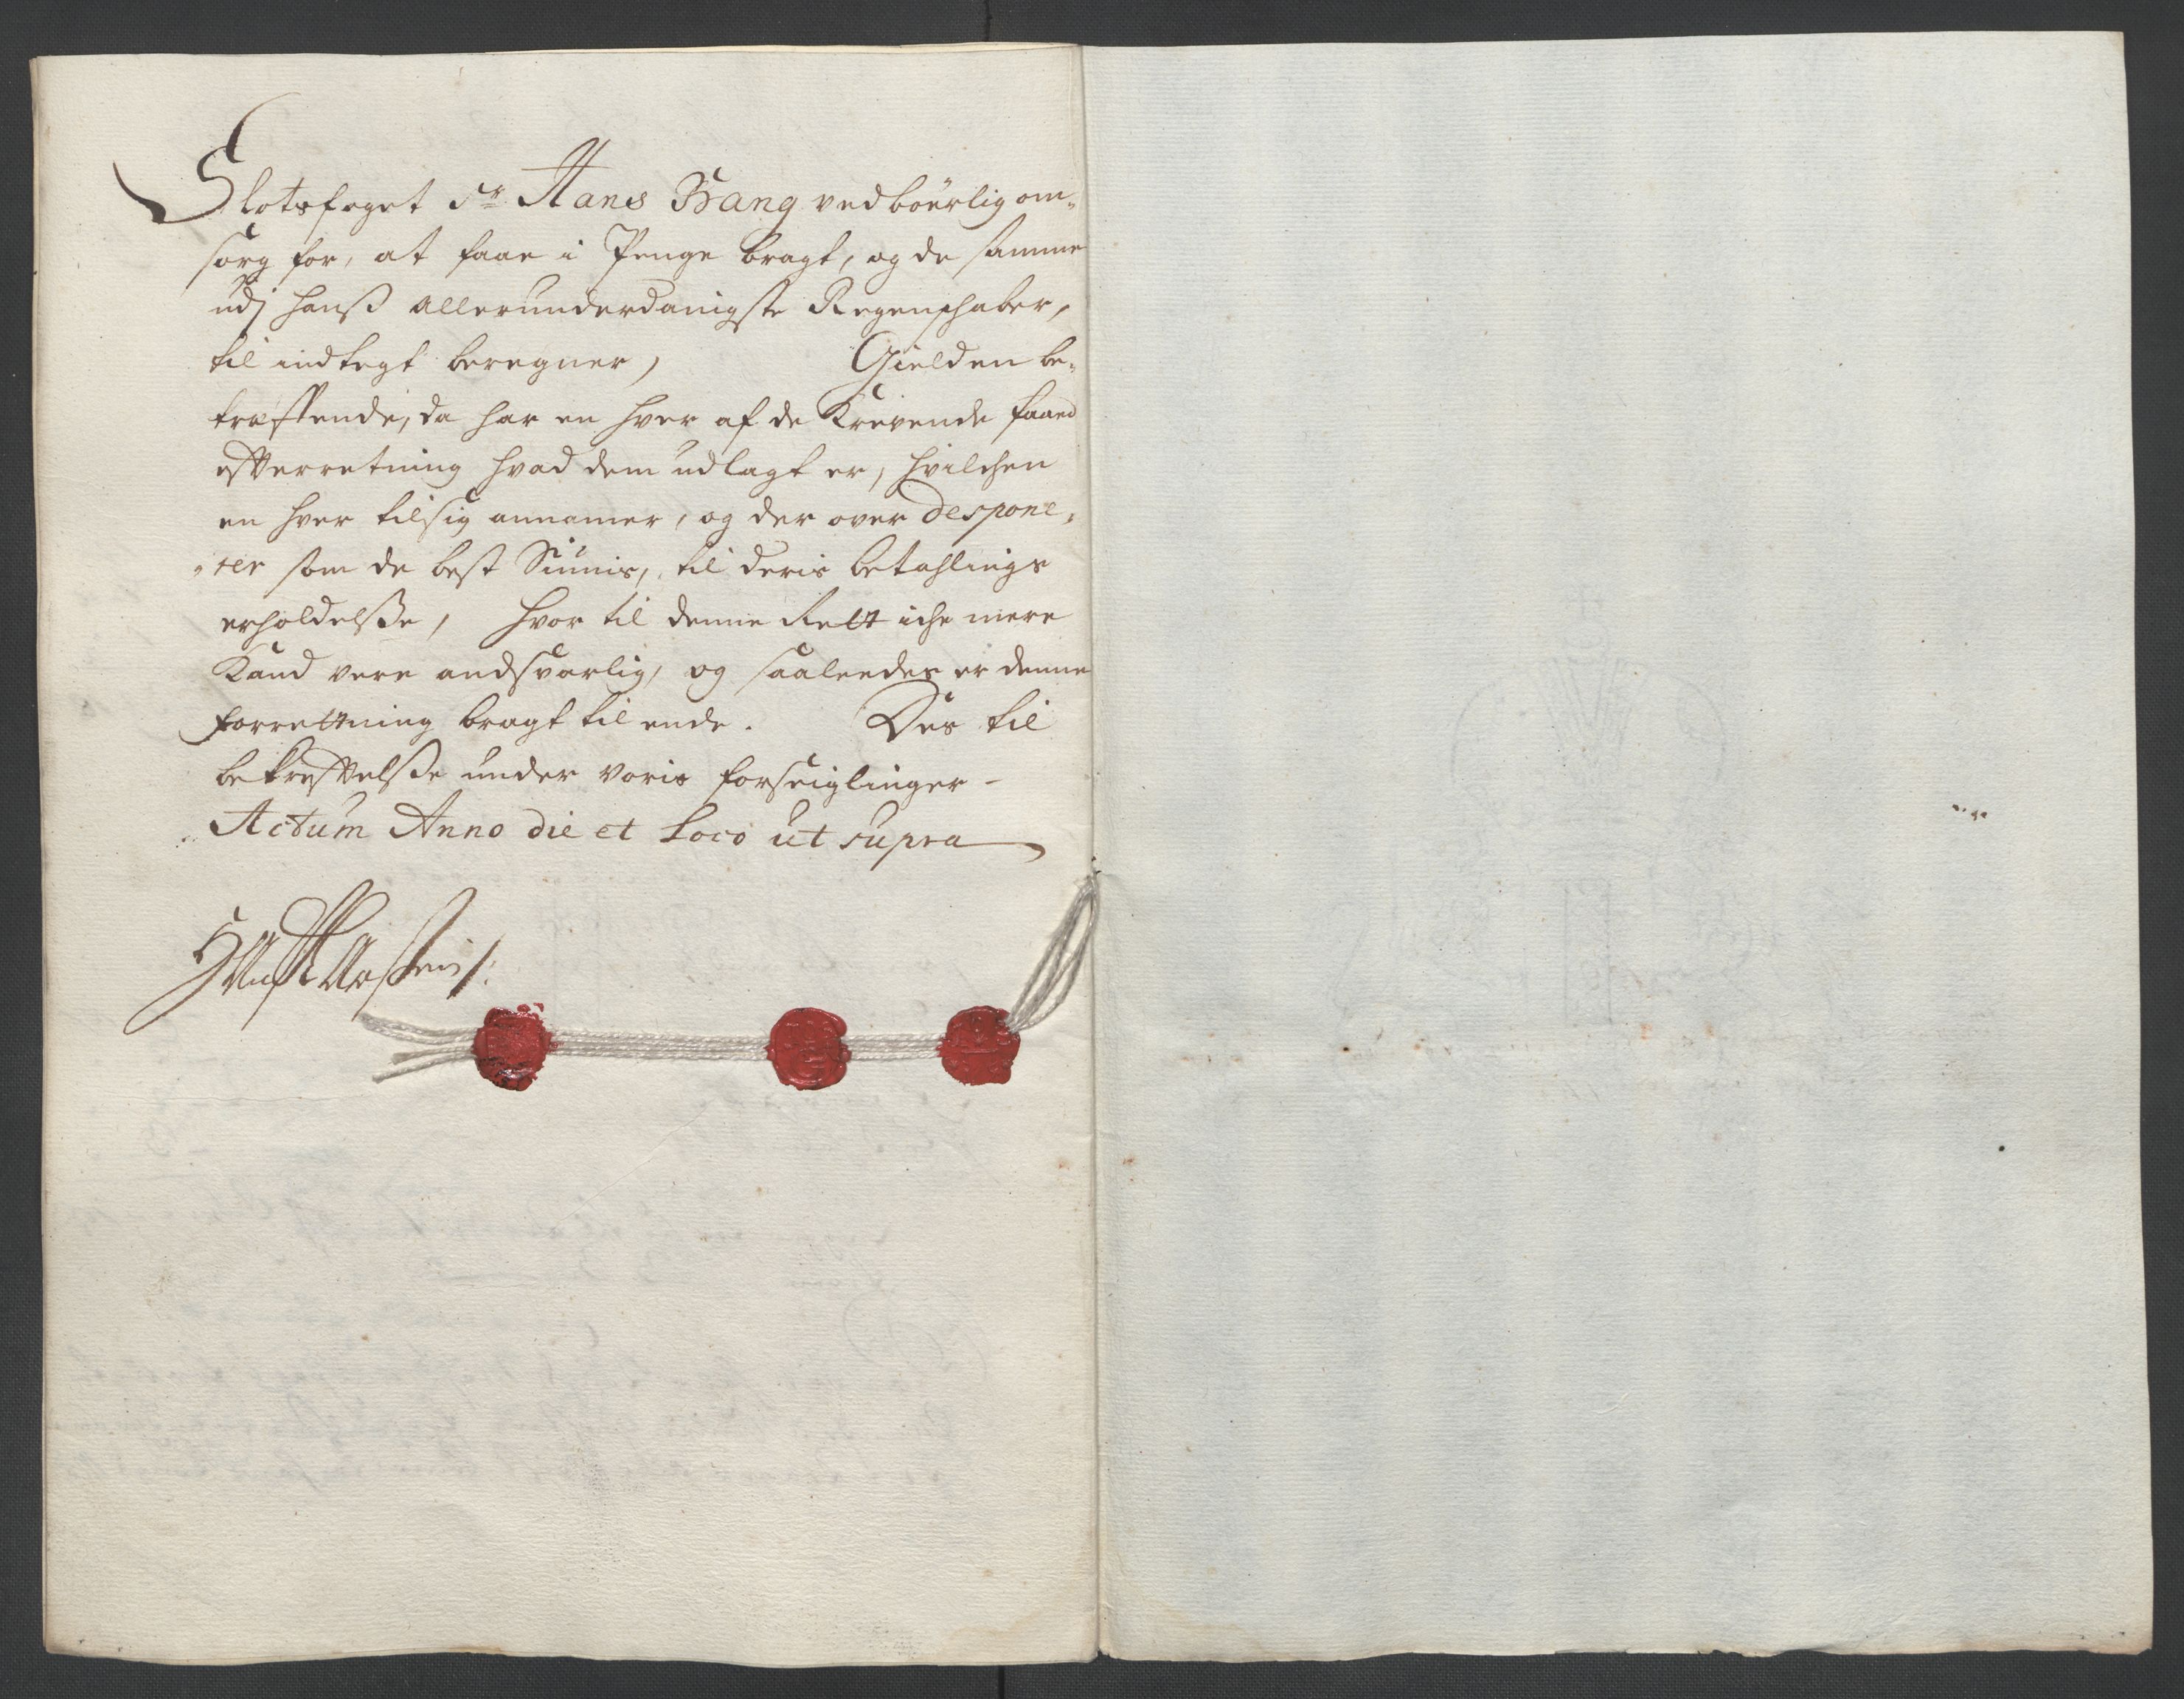 Slotsfoget Sr. Hans Bang ved bôerlig om-
sorg for, at faae i Penge bragt, og de samme
udj hanß allerunderdanigste Regenschaber,
til indtegt beregner, Gielden be-
træffende, da har en hver af de Krevende faaed
efterretning hvad dem udlagt er, hvilchen
en hver til sig annamer, og der over despone-
-rer som de best Siunis, til deris betahlings
erholdelße, hvor til denne Rett iche mere
Kand vere andsvarlig, og saaleedes er denne
forrettning bragt til ende. Des til
bekreftelße under voris forseiglinger -
Actum Anno die et Loco ut supra